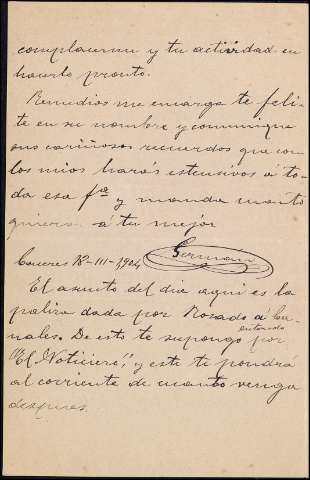 complacerme y tu actividad en
hacerlo pronto.
Remedios me encarga te feli-
te en su nombre y comunique
sus cariñosos recuerdos que con
los mios harás extensivos a to-
da esa fª y manda cuanto
quieras á tu mejor
Germán
Cáceres 18-III-1904
El asunto del dia aqui es la
paliza dada por Rosado á Ca-
nales. De esto te supongo enterado por
"El Noticiero", y este te pondrá
al corriente de cuanto venga
despues.